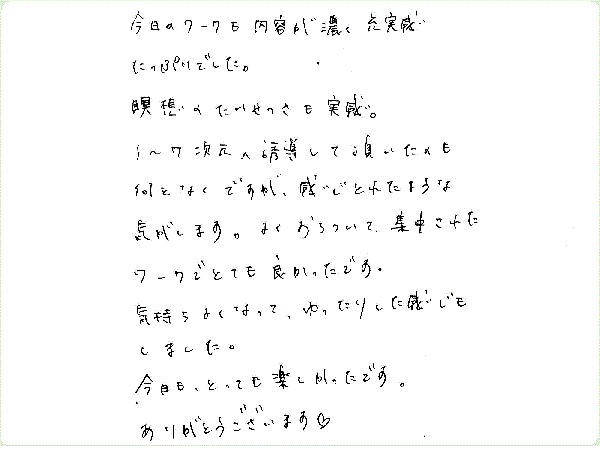 今日のワークも内容が濃く充実感
たっぷりでした。
瞑想のたいせつさも実感。
1〜7次元へ誘導して頂いたのも
何となくですが、感じとれたような
気がします。よくおちついて、集中された
ワークでとても良かったです。
気持ちよくなって、ゆったりした感じも
しました。
今日も、とっても楽しかったです。
ありがとうございます♡